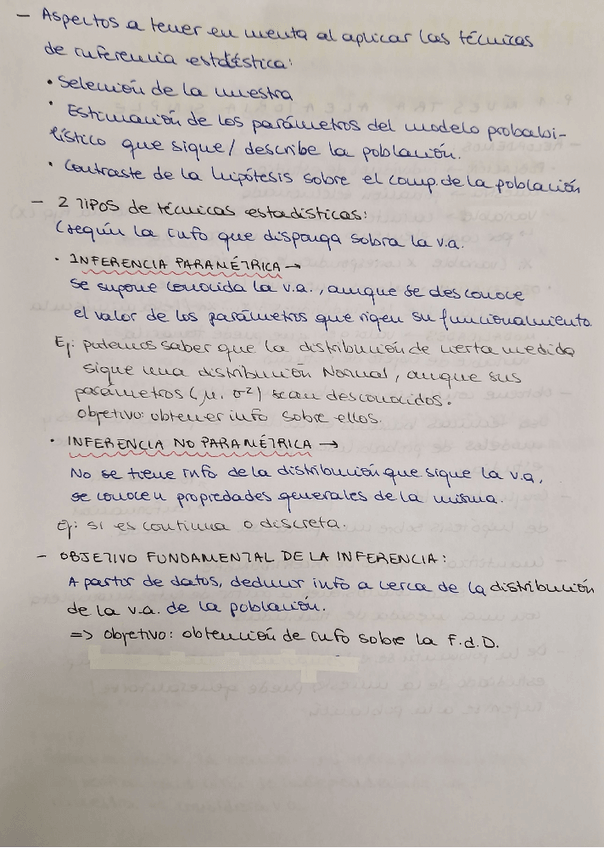 - Aspectos a tener en cuenta al aplicar las técnicas
de inferencia estadística:
• Selección de la muestra
• Estimación de los parámetros del modelo probabi-
lístico que sigue / describe la población.
• Contraste de la hipótesis sobre el comp. de la población
- 2 TIPOS de técnicas estadísticas:
(según la info que disponga sobra la v.a.
• INFERENCIA PARAMÉTRICA →
se supone conocida la v.a., aunque se desconoce
el valor de los parámetros que rigen su funcionalmiento.
Ej: podemos saber que la distribución de cierta medida
sigue una distribución Normal, aunque sus
parámetros (μ, σ²) sean desconocidos.
objetivo: obtener info sobre ellos.
• INFERENCIA NO PARAMÉTRICA →
No se tiene info de la distribución que sigue la v.a,
se conocen propiedades generales de la misma.
Ej: si es continua o discreta.
- OBJETIVO FUNDAMENTAL DE LA INFERENCIA:
A partir de datos, deducir info a cerca de la distribución
de la v.a. de la población.
=> objetivo: obtención de info sobre la F.d.D.